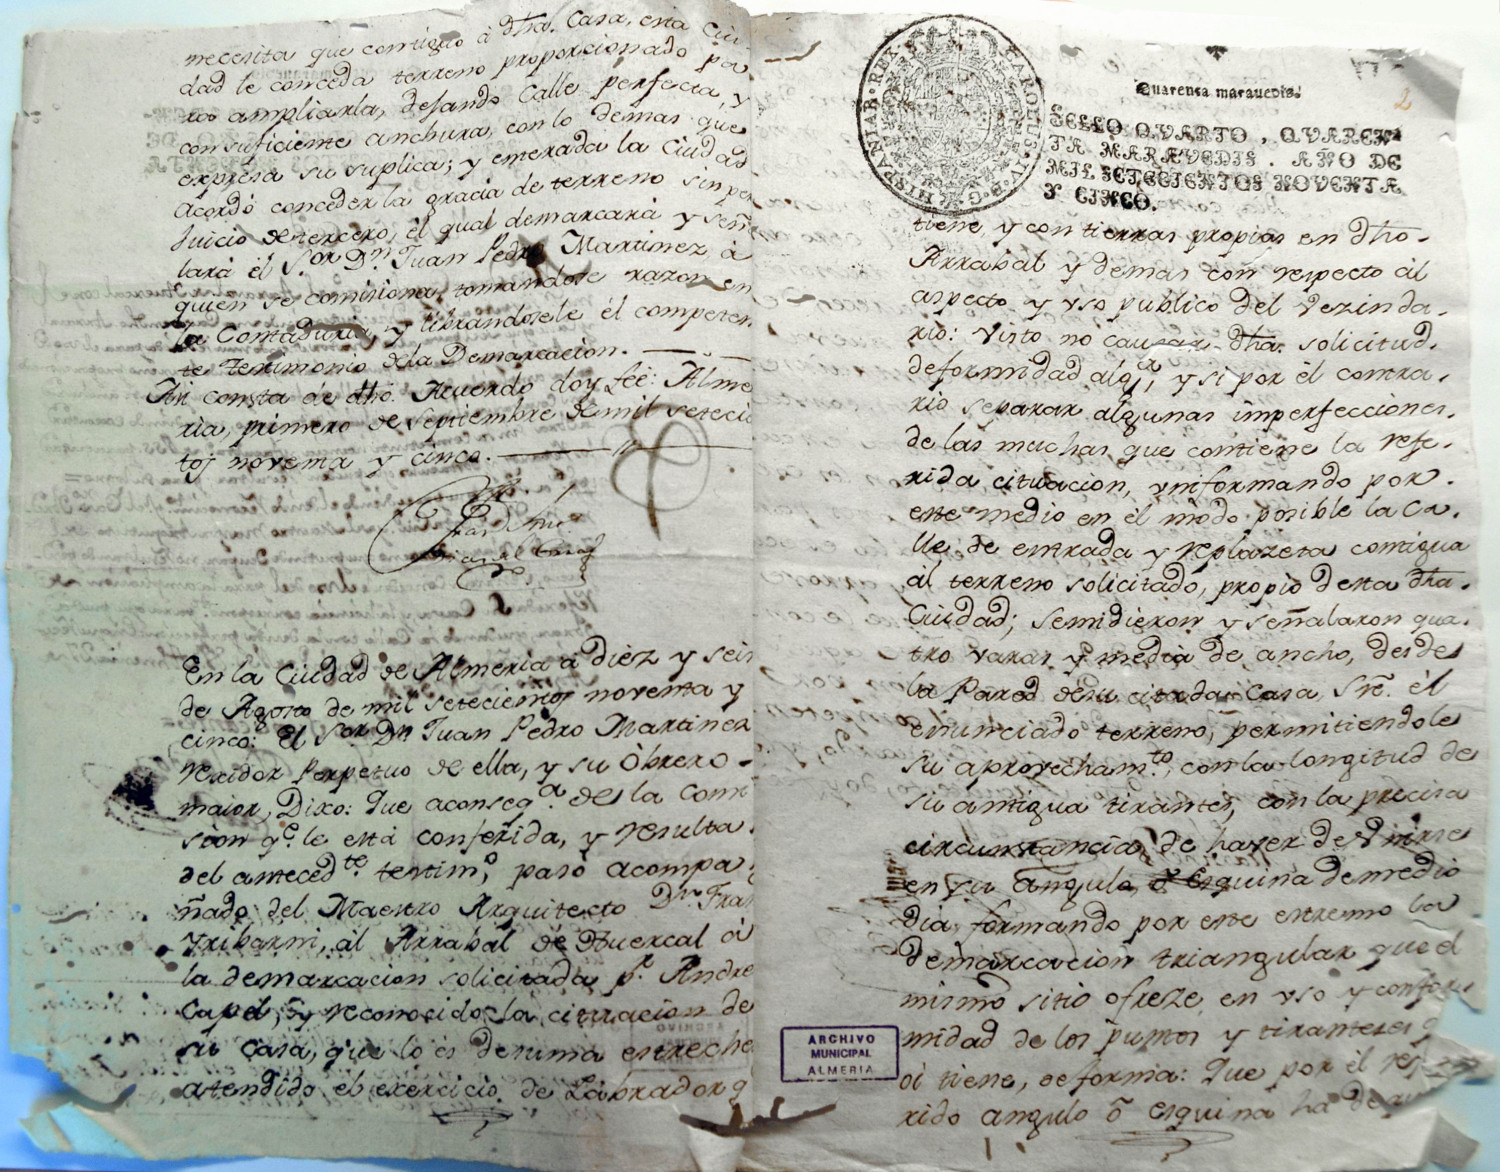 necesita que contiguo â dha. Casa, esta Ciu-
dad le conceda terreno proporcionado pa
ampliarla, dejando Calle perfecta, y
con suficiente anchura, con lo demas que
expresa su suplica; y enterada la Ciudad
Acordó concederla gracia de terreno sin per
juicio de tercero, el qual demarcará y señ
lará el Sor. Dn. Juan Pedro Martinez, â
quien se comisiona, tomandose razon en
la Contaduria, y librandosele él competen
te testimonio de la Demarcacion.
Asi consta de dho. Acuerdo doy feè: Alme
ria, primero de Septiembre de mil setecie
tos noventa y cinco.
En la Ciudad de Almeria â diez y seis
de Agosto de mil setecientos noventa y
cinco: El Sor. Dn. Juan Pedro Martinez
Rexidor Perpetuo de ella, y su Obrero
maior, Dixo: Que aconseqa. de la Comi
sion qe. le está conferida, y resulta
del antecedte. testimo. pasó acompa
ñado del Maestro Arquitecto Dn. Fran
Yribarni, âl Arrabal de Huercal â
la demarcacion solicitada pr. Andre
Capel, y reconocido la cituacion de
su Casa, que lo es de suma estreche
atendido el exercicio de Labrador q
Quarenta maravedis.
2
CAROLUS IV D G HISPANIAR REX
SELLO QVARTO, QVAREN
TA MARAVEDIS. AÑO DE
MIL SETECIENTOS NOVENTA
Y CINCO.
tiene y con tierras propias en dho.
Arrabal y demas con respecto âl
aspecto y vso publico del Vezinda.
rio: Visto no causar dha. solicitud.
deformidad algª., y si por él contra.
rio separar algunas imperfecciones.
de las muchas que contiene la refe.
rida cituacion, ynformando por.
este medio en él modo posible la Ca.
lle de entrada y replazeta contigua
âl terreno solicitado, propio de esta dha.
Ciudad; se midieron y señalaron qua.
tro varas y media de ancho, desde
la Pared de su citada Casa, Sre. él
enunciado terreno, permitiendole
su aprovechamto., con la longitud de
su antigua tirantes, con la precisa
circunstancia, de haver de Vnirse
en su angulo, ô Esquina de medio
dia formando por este extremo la
Demarcacion triangular que el
mismo sitio ofreze en vso y confor
midad de los puntos y tirantes
oi tiene, de forma: Que por él ref
rido angulo ô Esquina ha de
ARCHIVO
MUNICIPAL
ALMERIA